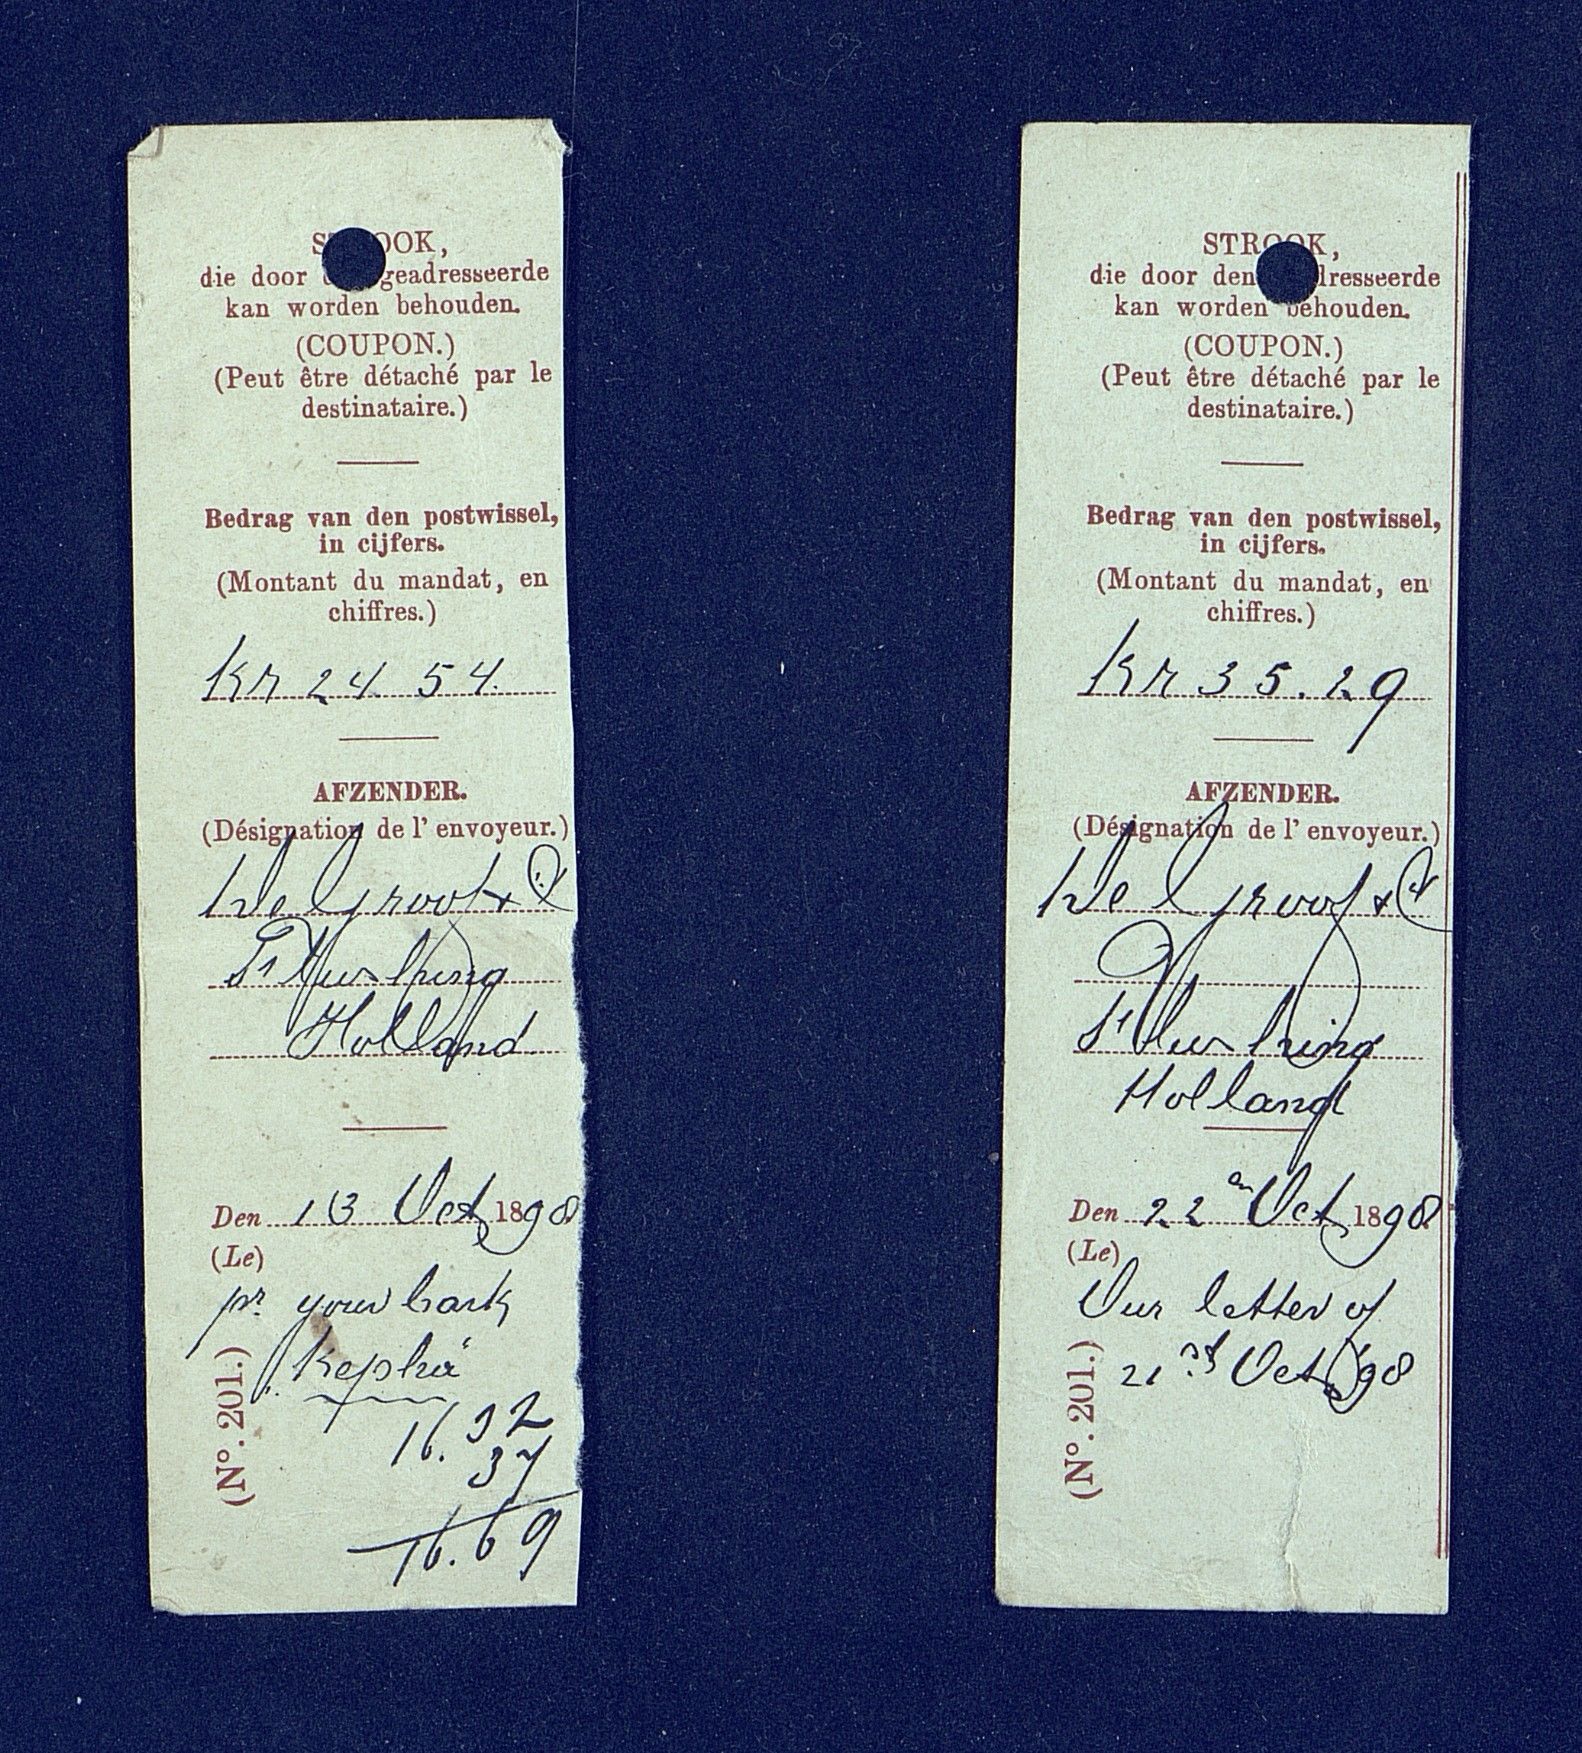 STROOK,
die door geadresseerde
kan worden behouden.
(COUPON.)
(Peut être détaché par le
destinataire.)
Bedrag van den postwissel,
in cijfers.
(Montant du mandat, en
chiffres.)
Kr 24.54.
AFZENDER.
(Désignation de l' envoyeur.)
De Groof & Cº
Flushing
Holland
Den 13 Oct 1898
(Le)
pr. your bark
"Kepha"
16.32
37
16.69
(Nº. 201.)
STROOK,
die door den geadresseerde
kan worden behouden.
(COUPON.)
(Peut être détaché par le
destinataire.)
Bedrag van den postwissel,
in cijfers.
(Montant du mandat, en
chiffres.)
Kr 35.29
AFZENDER.
(Désignation de l' envoyeur.)
De Groof & Cº
Flushing
Holland
Den 22 Oct 1898
(Le)
Our letter of
21st Oct 98
(Nº. 201.)